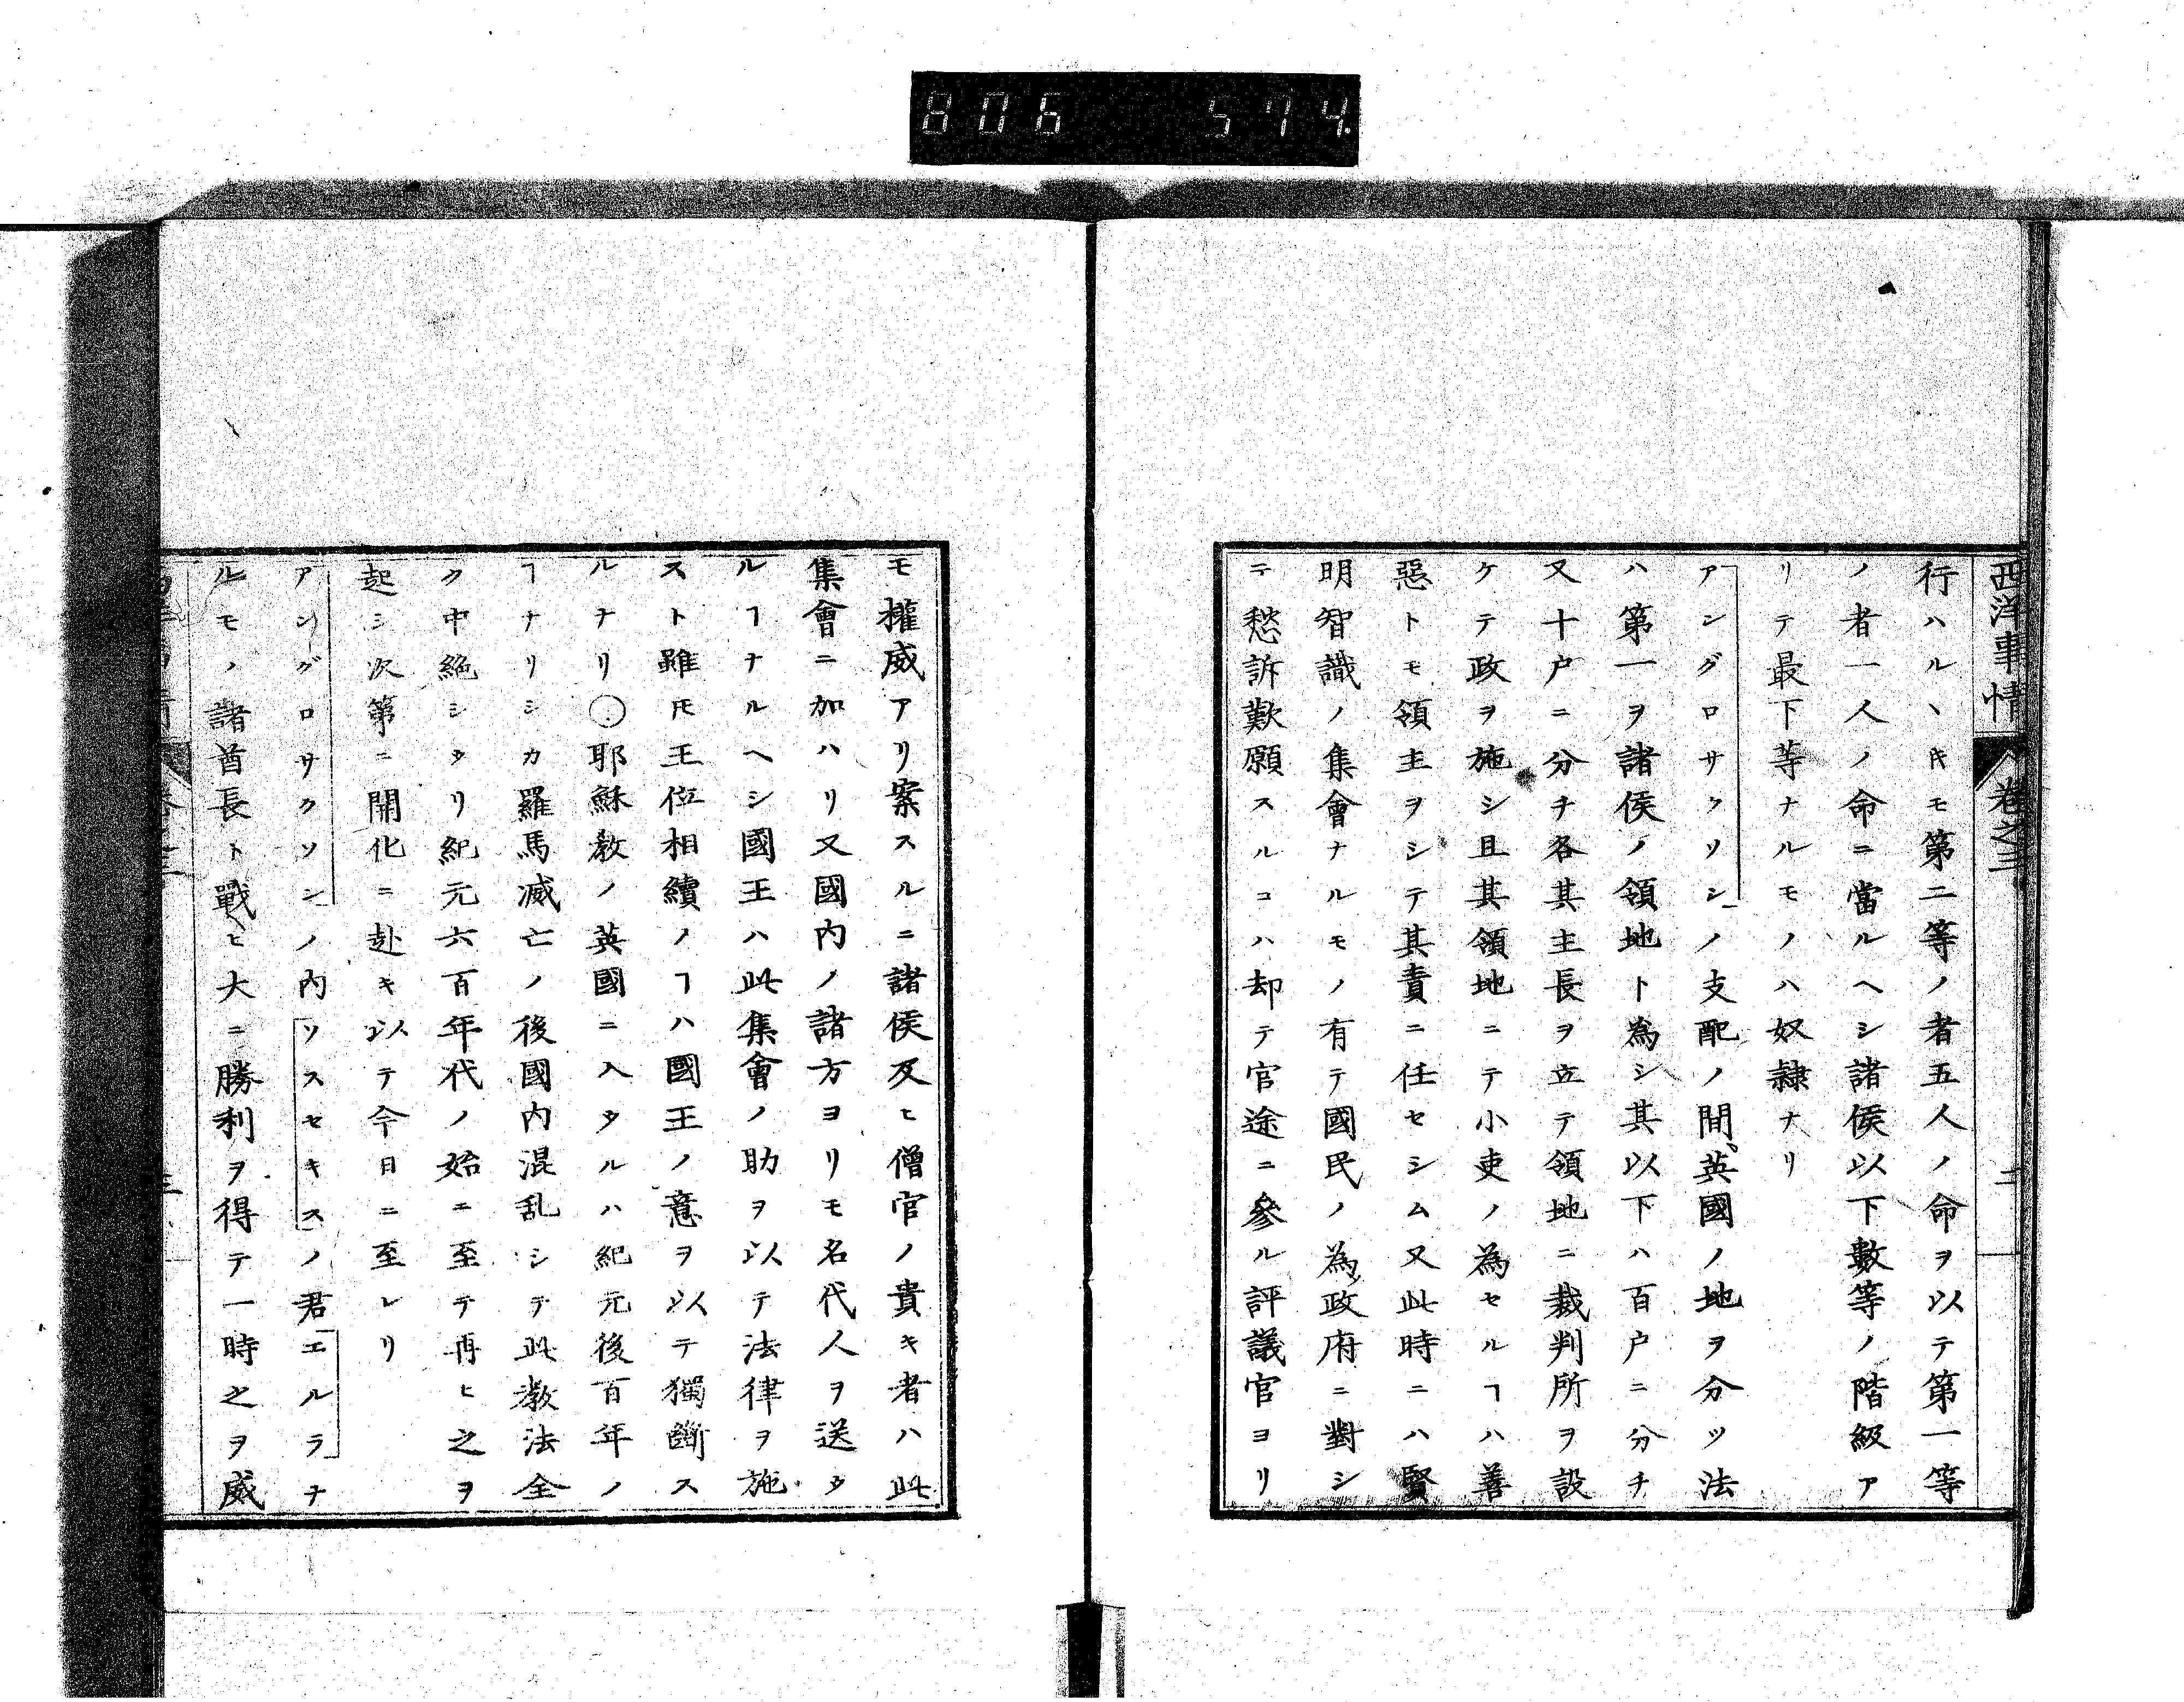 806 574.
西洋事情 卷之三 二
行ハルヽ𪜈モ第二等ノ者五人ノ命ヲ以テ第一等
ノ者一人ノ命ニ當ルヘシ諸侯以下數等ノ階級ア
リテ最下等ナルモノハ奴隷ナリ
アングロサクソンノ支配ノ間英國ノ地ヲ分ツ法
ハ第一ヲ諸侯ノ領地ト為シ其以下ハ百戸ニ分チ
又十戸ニ分チ各其主長ヲ立テ領地ニ裁判所ヲ設
ケテ政ヲ施シ且其領地ニテ小吏ノ為セルヿハ善
惡トモ領主ヲシテ其責ニ任セシム又此時ニハ賢
明智識ノ集會ナルモノ有テ國民ノ為政府ニ對シ
テ愁訴歎願スルコハ却テ官途ニ參ル評議官ヨリ
モ權威アリ案スルニ諸侯及ヒ僧官ノ貴キ者ハ此
集會ニ加ハリ又國内ノ諸方ヨリモ名代人ヲ送タ
ルヿナルヘシ國王ハ此集會ノ助ヲ以テ法律ヲ施
スト雖𪜈王位相續ノヿハ國王ノ意ヲ以テ獨斷ス
ルナリ○耶穌教ノ英國ニ入タルハ紀元後百年ノ
ヿナリシカ羅馬滅亡ノ後國内混乱シテ此教法全
ク中絶シタリ紀元六百年代ノ始ニ至テ再ヒ之ヲ
起シ次第ニ開化ニ赴キ以テ今日ニ至レリ
アングロサクソンノ内ソスセキスノ君エルラナ
ルモノ諸酋長ト戰ヒ大ニ勝利ヲ得テ一時之ヲ威